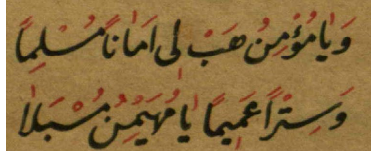 وَيَا مُؤْمِنُ هَبْ لِى اَمَانًا مُسْلِمًا
وَسِتْرًا عَمِيمًا يَا مُهَيْمِنُ مُسْبَلَا